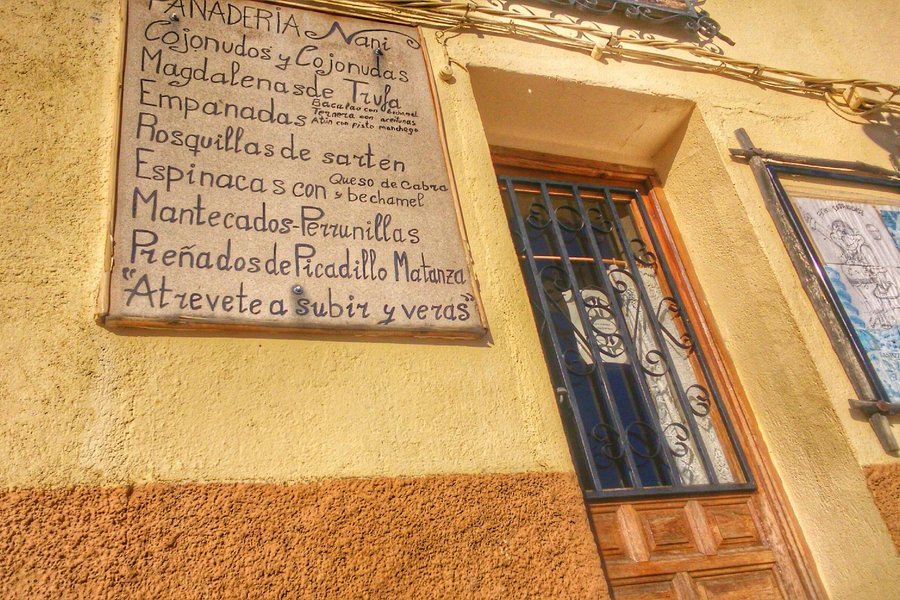 PANADERÍA Nani
Cojonudos y Cojonudas
Magdalenas de Trufa
Empanadas
Bacalao con bechamel
Ternera con aceitunas
Atún con pisto manchego
Rosquillas de sartén
Espinacas con Queso de Cabra
y bechamel
Mantecados-Perrunillas
Preñados de Picadillo Matanza
"Atrevete a subir y veras"